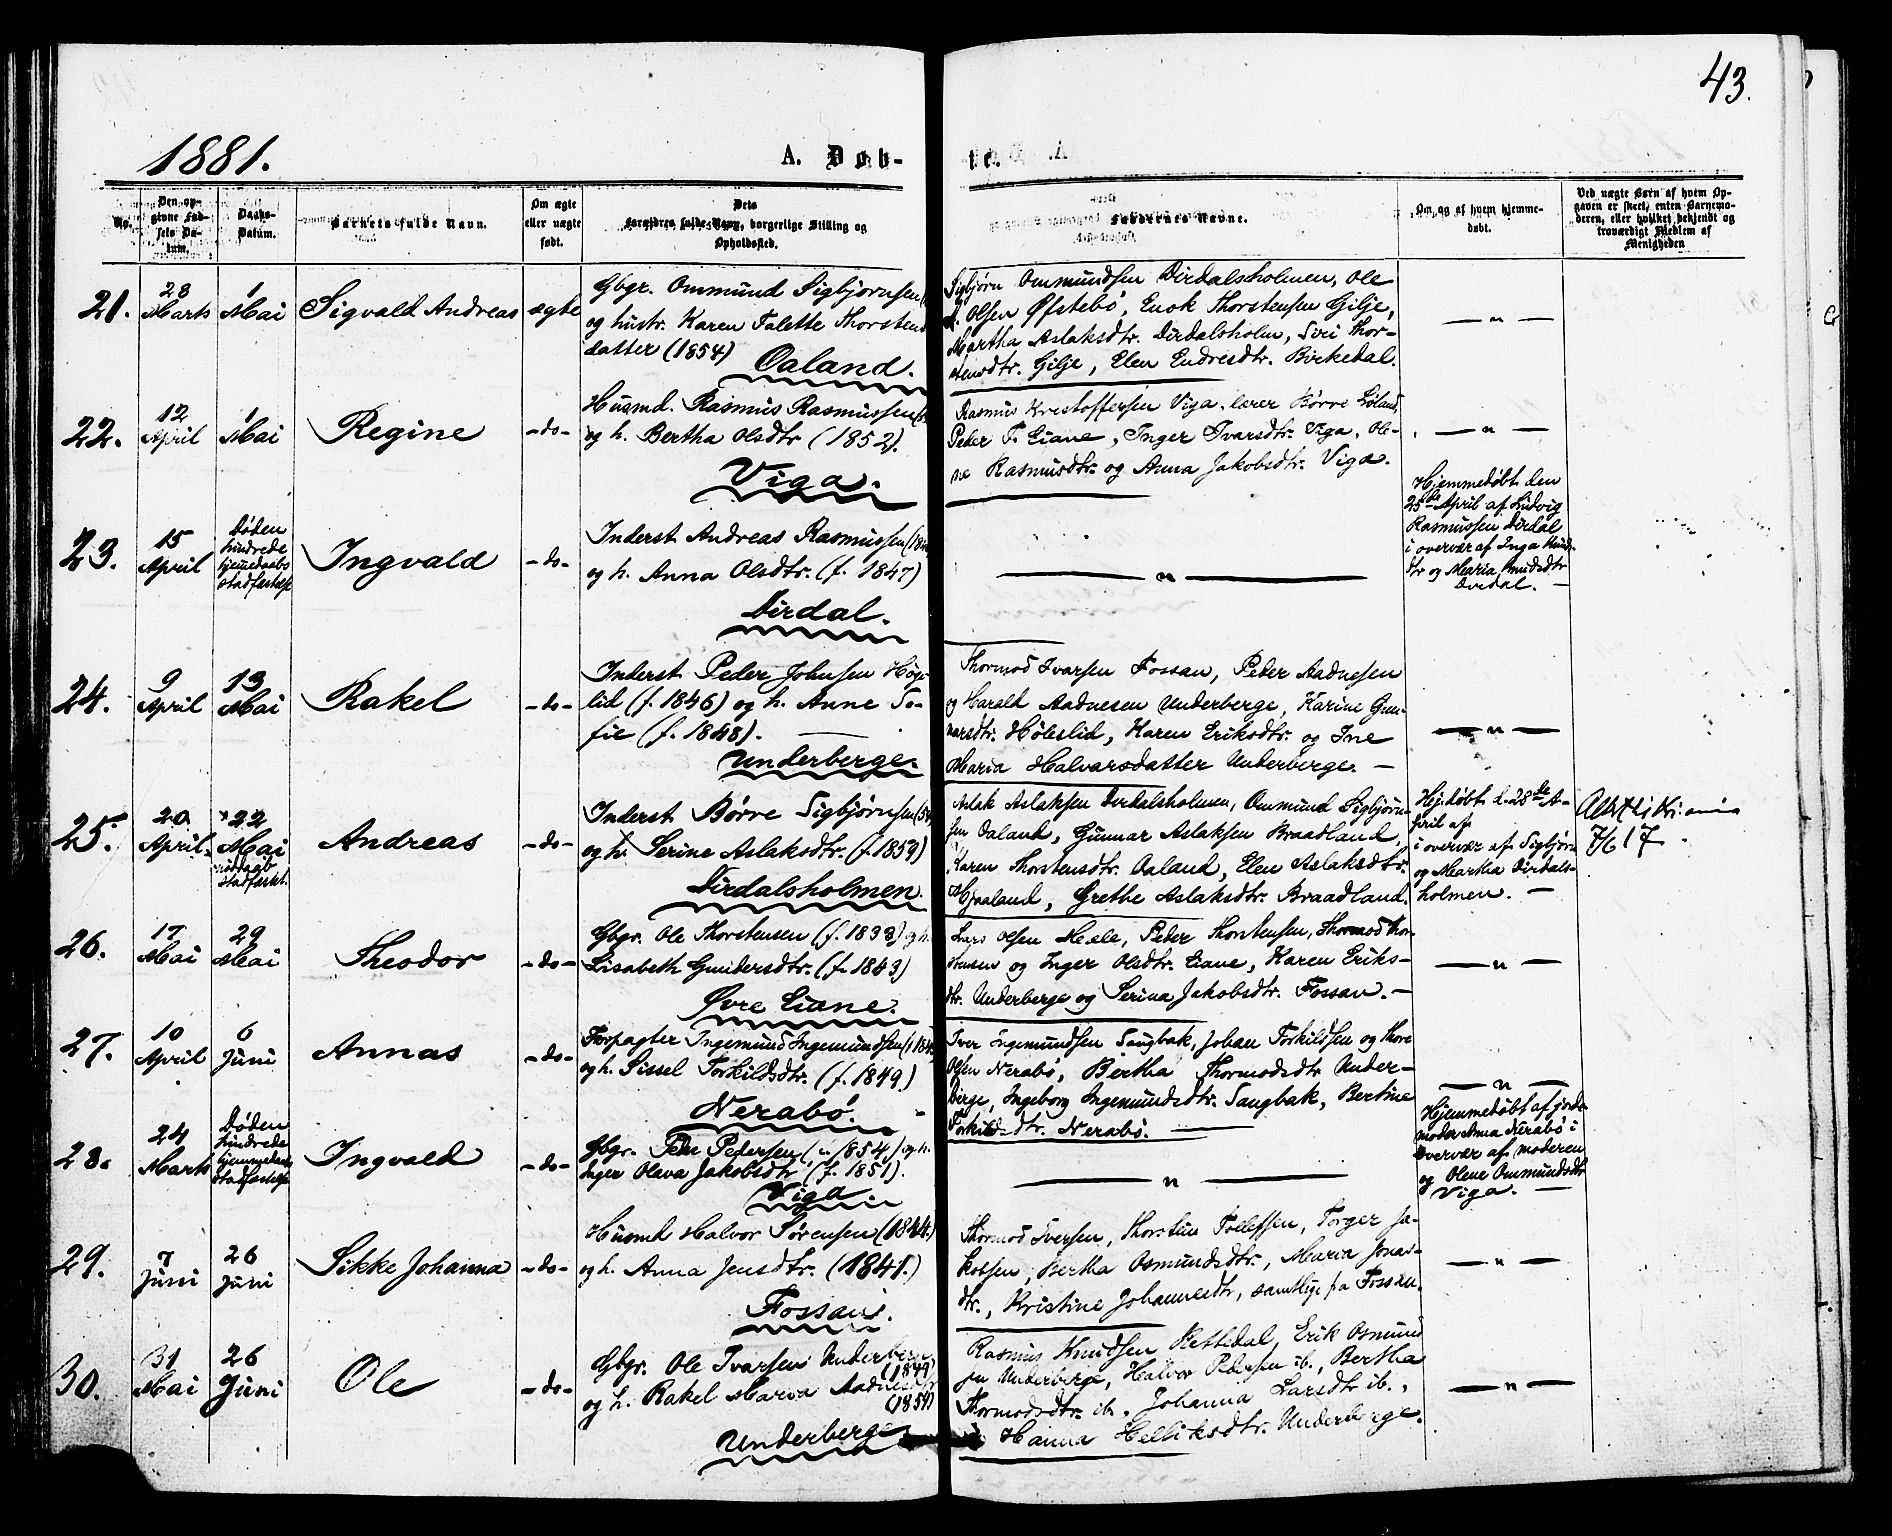 43.
1881.
A. Døb-
te.
No.
Den op-
givne Fød-
sels Da-
tum.
Daabs-
Datum.
Barnets fulde Navn.
Om ægte
eller uægte
født.
Dets
Forældres fulde Navn, borgerlige Stilling og
Opholdssted.
Faddernes Navne.
Om og af hvem hjemme-
døbt.
Ved uægte Børn af hvem Op-
gaven er skeet, enten Barnemo-
deren, eller hvilket bekjendt og
troværdigt Medlem af
Menigheden
21.
28
Marts
1
Mai
Sigvald Andreas
ægte
Gbgr. Ommund Sigbjørnsen
og hustr. Karen Talette Thorstens
datter (1854)
Oaland.
Sigbjørn Ommundsen Dirdalsholmen, Ole
Olsen Øfstebø, Enok Thorstensen Gilje,
Martha Aslaksdtr. Dirdalsholm, Siri Thor-
stensdtr. Gilje, Elen Endresdtr. Birkedal.
— " —
22.
12
April
1
Mai
Regine
-do-
Husmd. Rasmus Rasmussen
og h. Bertha Olsdtr (1852).
Viga.
Rasmus Kristoffersen Viga, lærer Børre Løland,
Peder T. Eiane, Inger Ivarsdtr. Viga, Ole-
ne Rasmusdtr. og Anna Jakobsdtr. Viga.
— " —
23.
15
April
Døden
hindrede
hjemmedaabs
stadfæstelse
Ingvald
-do-
Inderst Andreas Rasmussen
og h. Anna Olsdtr. (f. 1847)
Dirdal.
— " —
Hjemmedøbt den
25de April af Ludvig
Rasmussen Dirdal
i overvær af Inga Knuds-
dtr og Maria Knudsdtr
Dirdal. —
24.
9
April
13
Mai
Rakel
-do-
Inderst Peder Johnsen Høge-
lid (f. 1846) og h. Anne So-
fie (f. 1848). —
Underberge.
Thormod Ivarsen Fossan, Peder Aadnesen
og Harald Aadnesen Underberge, Karine Gun-
narsdtr. Høleslid, Karen Eriksdtr. og Ine
Maria Halvarsdatter Underberge. —
— " —
25.
20
April.
22
Mai
stadfæst.
Andreas
-do-
Inderst Børre Sigbjørnsen (54
og h. Serine Aslaksdtr. (f. 1859)
Dirdalsholmen.
Aslak Aslaksen Dirdalsholmen, Ommund Sigbjørn-
sen Oaland, Gunnar Aslaksen Braadland,
Karen Thorstensdtr. Oaland, Elen Aslaksdtr.
Hjaaland, Grethe Aslaksdtr. Braadland.
Hj.døbt d. 28de A-
pril af
i overvær af Sigbjørn
og Martha Dirdals-
holmen. —
7/6 17
26.
17
Mai
29
Mai
Theodor
-do-
Gbgr. Ole Thorstensen (f. 1838) og h.
Lisabeth Gundersdtr. (f. 1843)
Øvre Eiane.
Lars Olsen Mæle, Peder Thorstensen, Thormod Thor-
stensen og Inger Olsdtr. Eiane, Karen Eriks-
dtr. Underberge og Serina Jakobsdtr. Fossan. —
— " —
27.
10
April
6
Juni
Annas
-do-
Forpagter Ingemund Ingemundsen
og h. Sissel Torkildsdtr. (f. 1849.)
Nerabø.
Iver Ingemundsen Taugbak, Johan Torkildsen og Thore
Olsen Nerabø, Bertha Thormodsdtr Under-
berge, Ingeborg Ingemundsdtr. Taugbak, Bertine
Torkildsdtr. Nerabø. —
— " —
28.
24
Marts
Døden
hindrede
hjemmedaabs
stadfæstelse
Ingvald
-do-
Gbgr. Peder Pedersen (1854) og h.
Inger Olava Jakobsdtr (f. 1851).
Viga
— " —
Hjemmedøbt af jorde-
moder Anna Nerabø i
overvær af moderen
og Olene Ommundsdtr
Viga. —
29.
7
Juni
26
Juni
Sikke Johanna
-do-
Husmd Halvor Sørensen (1844.)
og h. Anna Jensdtr. (1841.)
Fossan.
Thormod Iversen, Thorstein Tollefsen, Torger Ja-
kobsen, Bertha Osmundsdtr., Maria Jonas-
dtr., Kristine Johannesdtr, samtlige på Fossan.
— " —
30.
31
Mai
26
Juni
Ole
-do-
Gbgr. Ole Ivarsen Underberge
(1849)
og h. Rakel Marva Aadnesdtr
(1854)
Underberge
Rasmus Knudsen Kettedal, Erik Osmund
sen Underberge, Halvor Pedersen ib., Bertha
Thormodsdtr. ib., Johanna Larsdtr ib.,
Hanna Helliksdtr. Underberge.
— " —